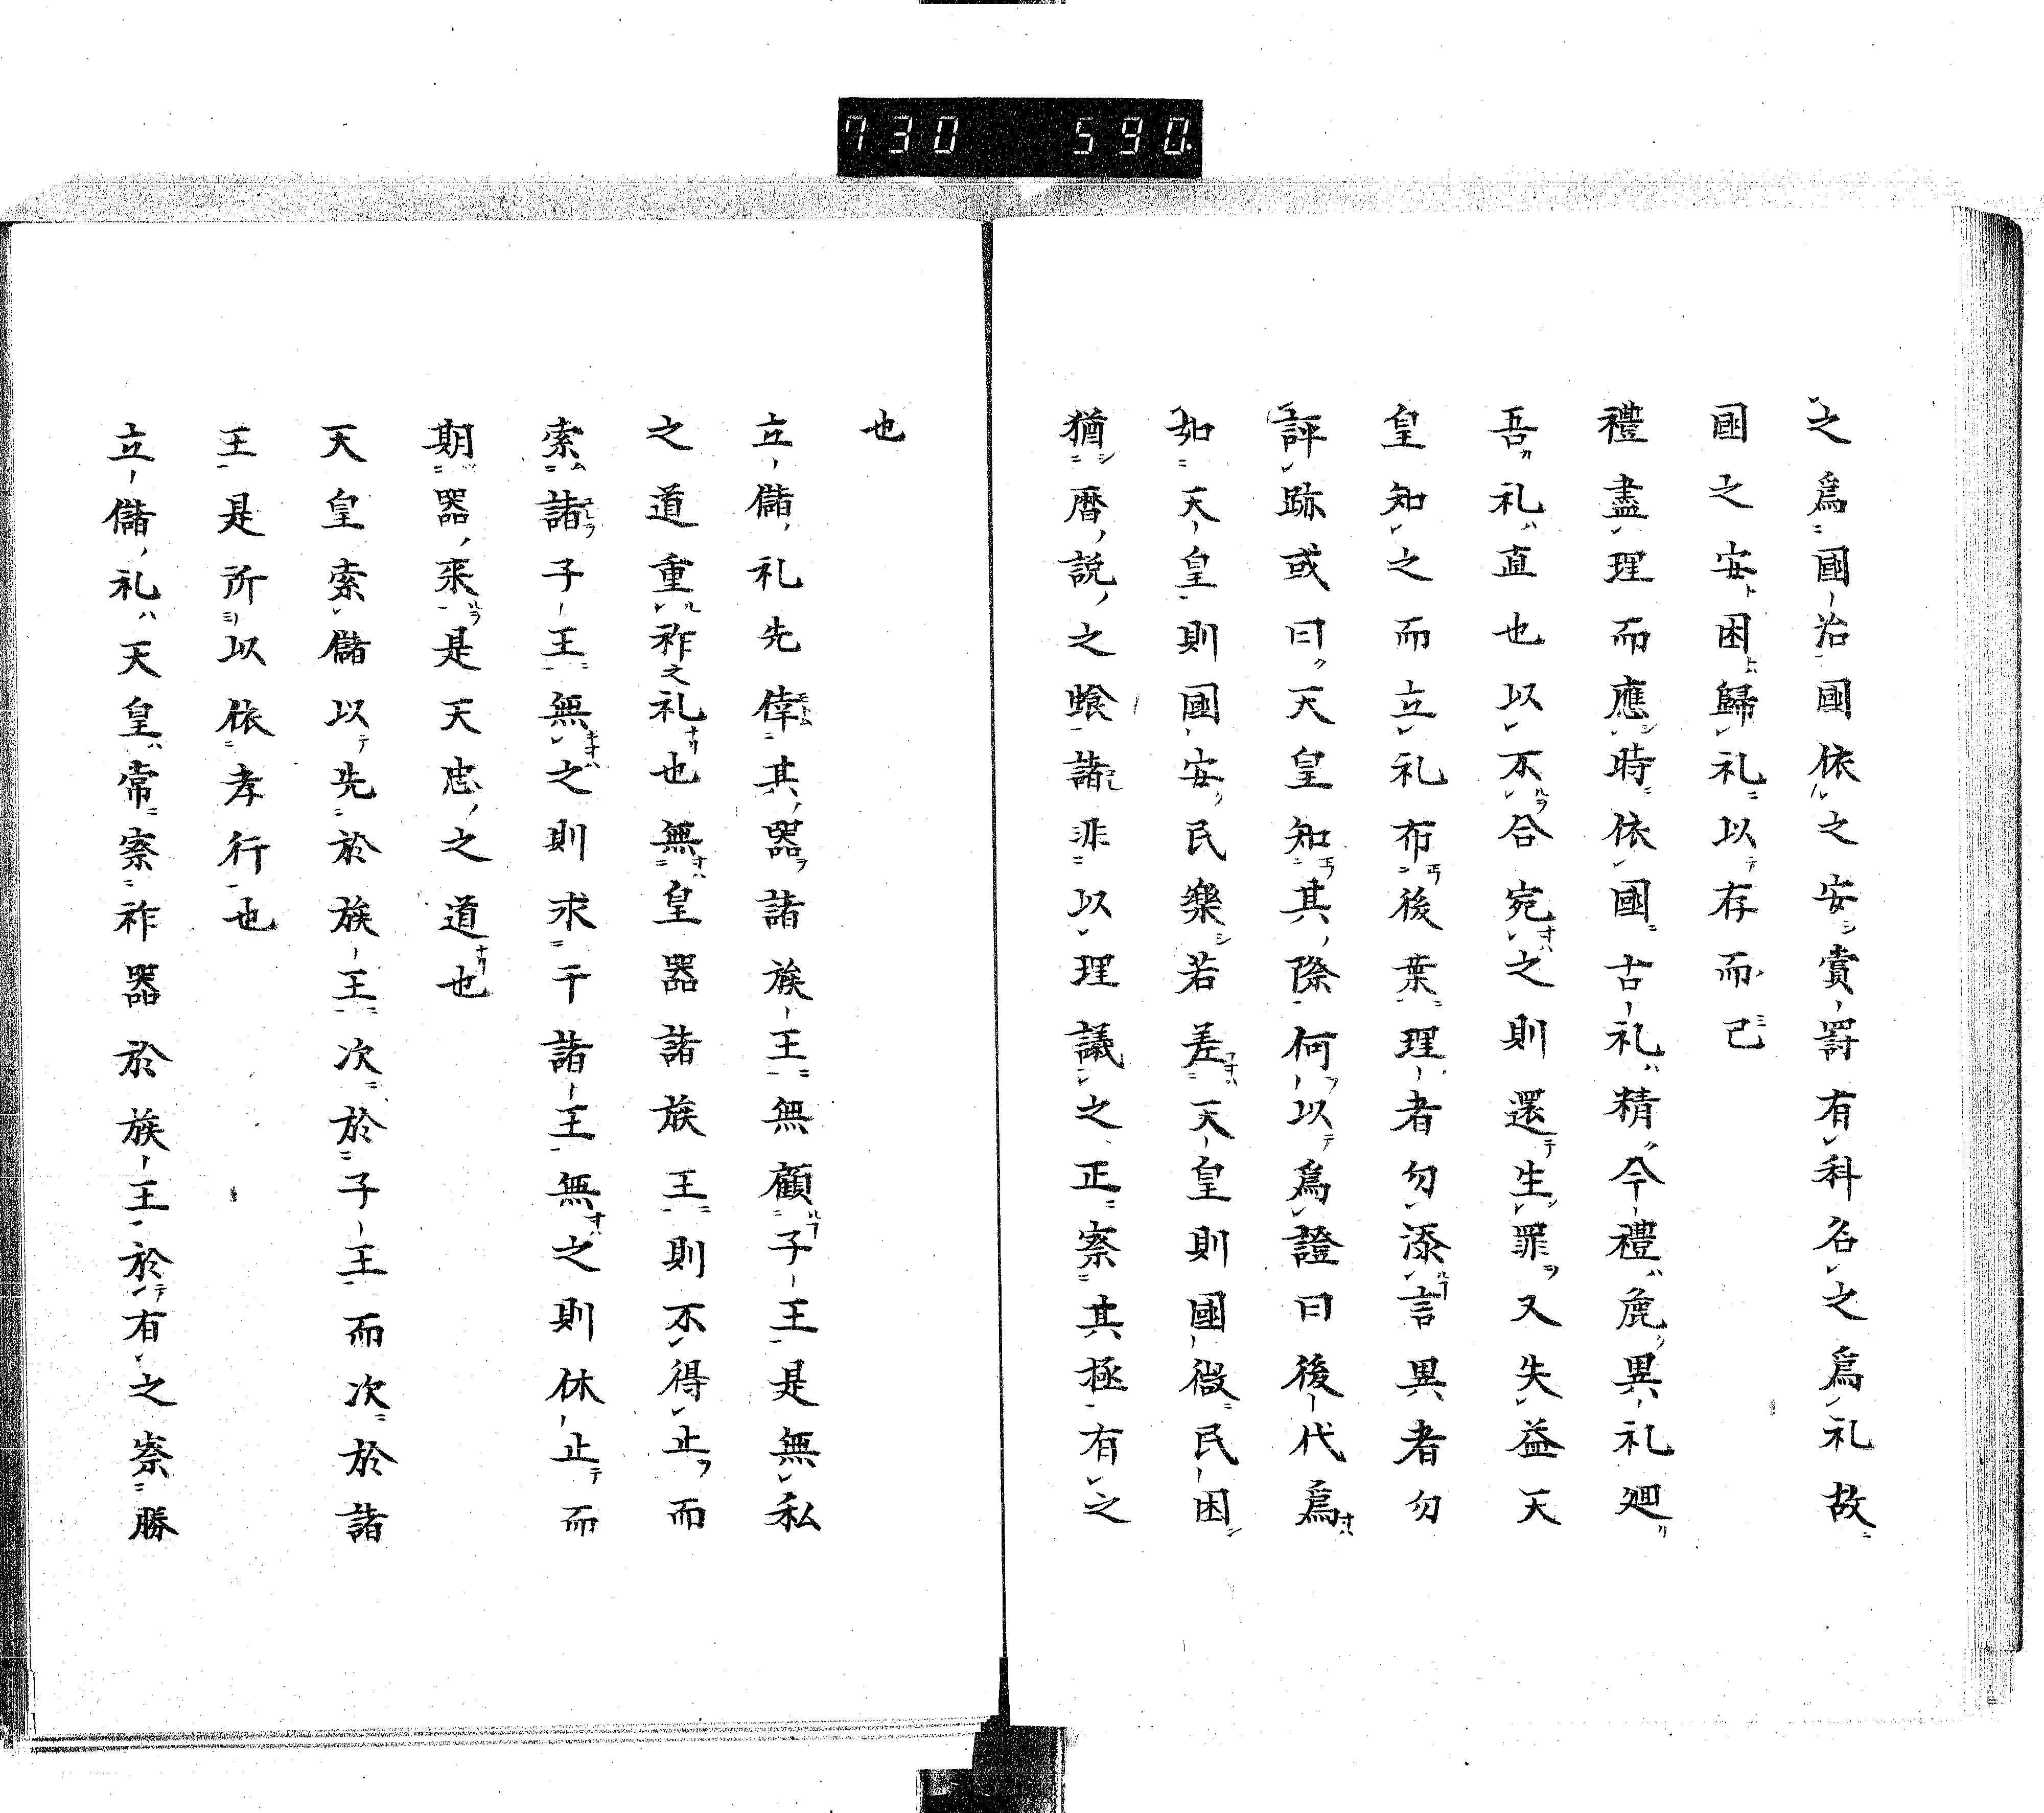 730 590.
之爲國治國依之安賞罸有科名之爲礼故
國之安困歸礼以存而已
禮盡理而應時依國古礼精今禮麁異礼廻
吾礼直也以不合宛之則還生罪又失益天
皇知之而立礼布後葉理者勿添言異者勿
評跡或曰天皇知其際何以爲證曰後代爲
如天皇則國安民樂若差天皇則國微民困
猶暦說之喰諸非以理議之正察其極有之
也
立儲礼先倖其器諸族王無顧子王是無私
之道重祚之礼也無皇器諸族王則不得止而
索諸子王無之則求于諸王無之則休止而
期器來是天忠之道也
天皇索儲以先於族王次於子王而次於諸
王是所以依孝行也
立儲礼天皇常察祚器於族王於有之察勝